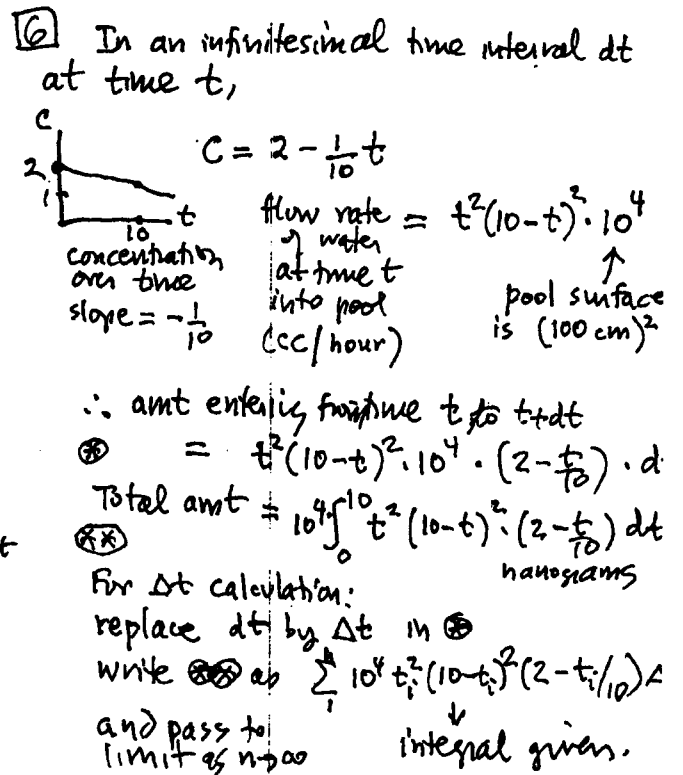 6 In an infinitesimal time interval dt
at time t,
C
2
1
10
t
C = 2 - 1/10 t
concentration
over time
slope = - 1/10
flow rate
of water
at time t
into pool
(cc/hour)
= t²(10-t)²·10⁴
↑
pool surface
is (100 cm)²
∴ amt entering from time t to t+dt
⊛ = t²(10-t)²·10⁴·(2-t/10)·d
Total amt = 10⁴·∫₀¹⁰ t²(10-t)²·(2-t/10) dt
t
(**)
nanograms
For Δt calculation:
replace dt by Δt in ⊛
write (**) as Σ₁ⁿ 10⁴ tᵢ²(10-tᵢ)²(2-tᵢ/10)Δ
and pass to
limit as n→∞
↓
integral given.